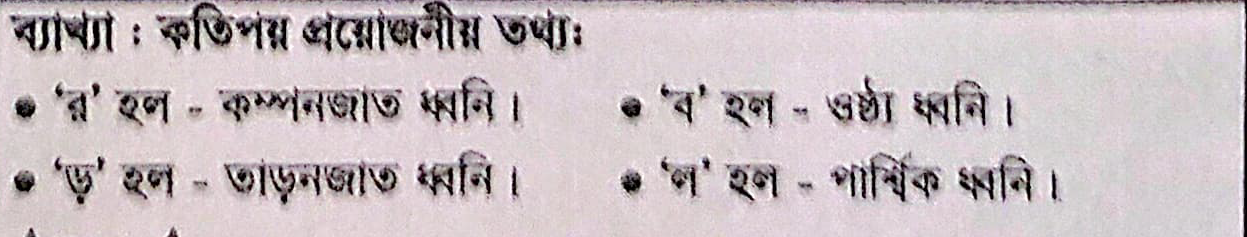 ব্যাখ্যা : কতিপয় প্রয়োজনীয় তথ্যঃ
● ‘র’ হল - কম্পনজাত ধ্বনি। ● ‘ব’ হল - ওষ্ঠ্য ধ্বনি।
● ‘ড়’ হল - তাড়নজাত ধ্বনি। ● ‘ল’ হল - পার্শ্বিক ধ্বনি।